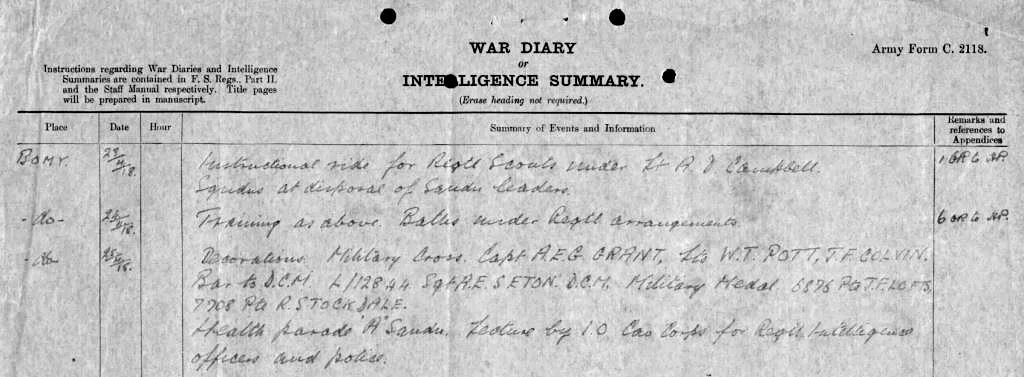 WAR DIARY
or
INTELLIGENCE SUMMARY.
(Erase heading not required.)
Army Form C. 2118.
Instructions regarding War Diaries and Intelligence
Summaries are contained in F. S. Regs., Part II.
and the Staff Manual respectively. Title pages
will be prepared in manuscript.
Place Date Hour Summary of Events and Information Remarks and references to Appendices
BOMY. Instructional ride for Regtl Scouts under Lt A. V Campbell.
Squdns at disposal of Squdn leaders.
-do- Training as above. Baths under Regtl arrangements.
-do- Decorations. Military Cross. Capt A.E.G. GRANT, Lts W.T. POTT, T.F. COLVIN.
Bar to D.C.M. L/12844 Sgt A.E. SETON. D.C.M. Military Medal 5876 Pte T.F. LOFTS,
7708 Pte R. STOCKDALE.
Health parade "A" Squdn. Lecture by I.O. Cav Corps for Regtl Intelligence
officers and police.